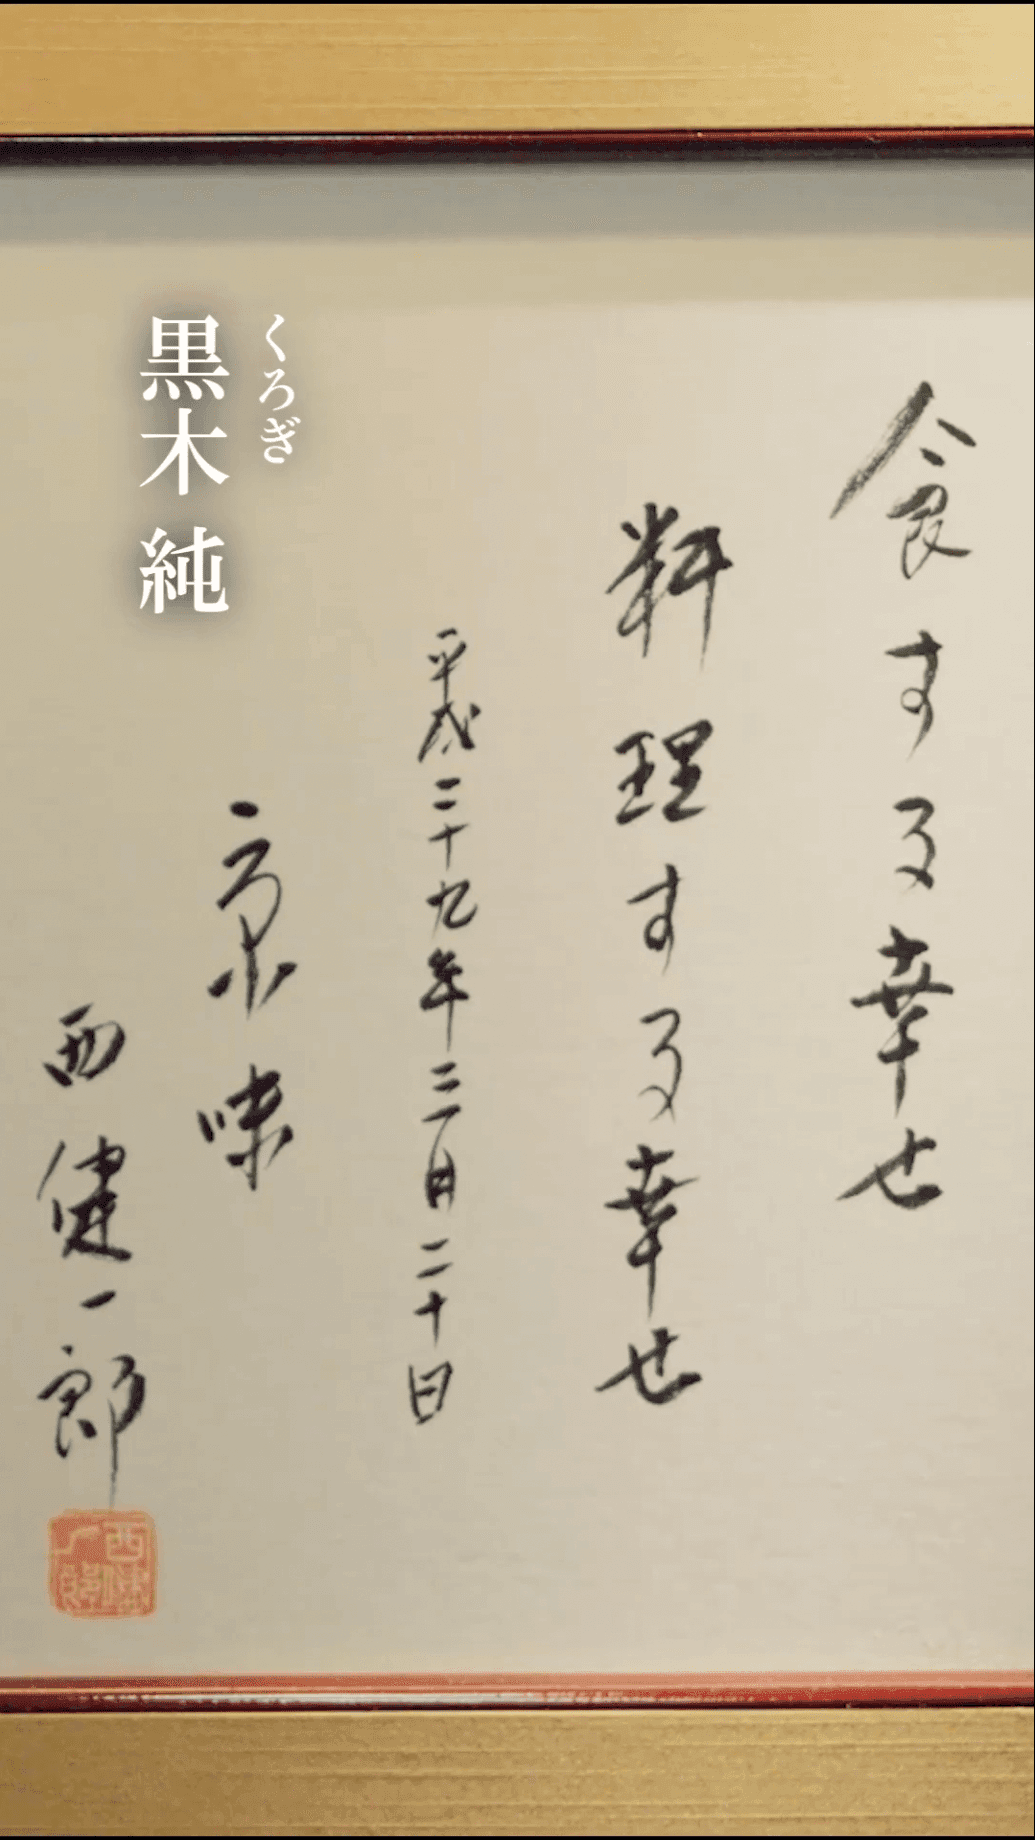 食する幸せ
料理する幸せ
平成二十九年三月二十日
京味
西健一郎
西健一郎
くろぎ
黒木 純